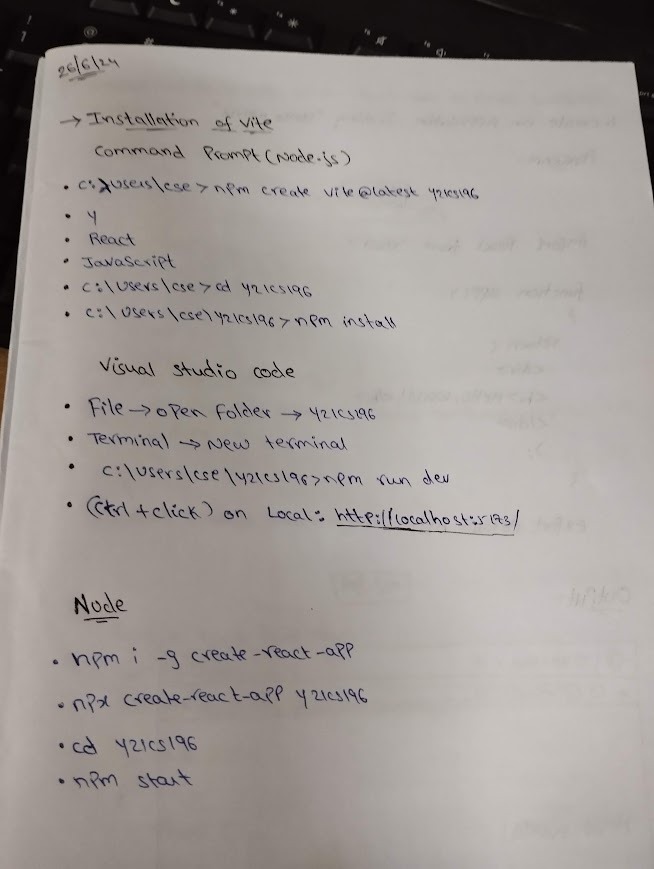 26/6/24
→ Installation of Vite
Command Prompt (Node.js)
• C:\users\cse > npm create vite@latest y21cs196
• Y
• React
• JavaScript
• C:\Users\cse > cd y21cs196
• C:\Users\cse\y21cs196 > npm install
Visual Studio code
• File → open Folder → y21cs196
• Terminal → New terminal
• C:\users\cse\y21cs196 > npm run dev
• (Ctrl + click) on Local: http://localhost:5173/
Node
• npm i -g create-react-app
• npx create-react-app y21cs196
• cd y21cs196
• npm start